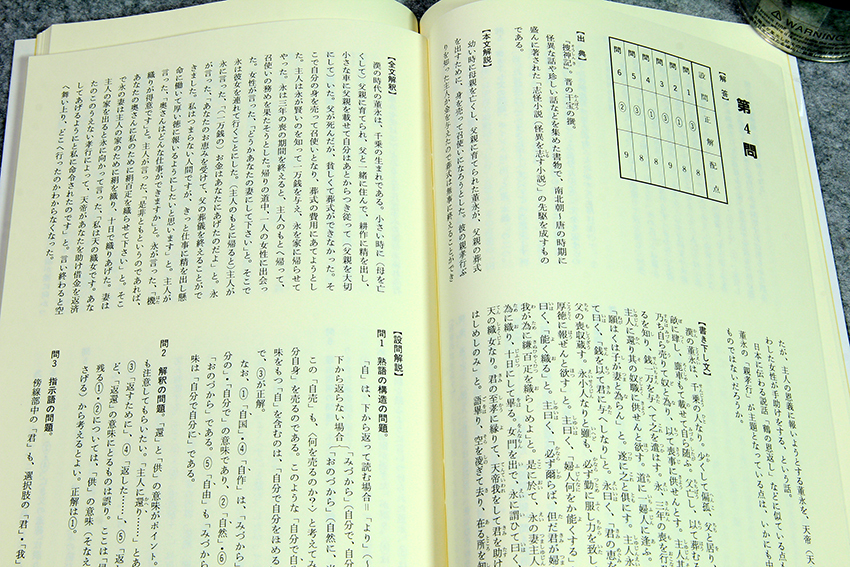 第4問
【解答】
設問 正解 配点
問1 ③ 8
問2 ① 8
問3 ① 8
問4 ③ 8
問5 ③ 9
問6 ② 9
【出典】
『捜神記』。晋の干宝の撰。
怪異な話や珍しい話などを集めた書物で、南北朝〜唐の時期に
盛んに著された「志怪小説(怪異を志す小説)」の先駆を成すもの
である。
【本文解説】
幼い時に母親を亡くし、父親に育てられた董永が、父親の葬式
を出すために、身を売って召使いになろうとした。彼の親孝行ぶ
りを知った主人が金を与えたので葬式は無事に終えることができ
たが、主人の恩義に報いようとする董永を、天帝(天
わした女性が手助けをする、という話。
日本に伝わる説話「鶴の恩返し」などに似ている点も
董永の「親孝行」が主題となっている点は、いかにも中
ものではないだろうか。
【書き下し文】
漢の董永は、千乗の人なり。少くして偏孤、父と居り、
畝に肆し、鹿車もて載せて自ら随ふ。父亡し、以て葬むる
乃ち自ら売りて奴と為り、以て喪事に供せんとす。主人其
るを知り、銭一万を与へて之を遣はす。永、三年の喪を行
主人に還り、其の奴職に供せんと欲す。道に一婦人に逢ふ。
「願はくは子が妻と為らん」と。遂に之と倶にす。主人永
て曰く、「銭を以て君に与へしなり」と。永曰く、「君の恵を
父の喪収蔵す。永小人なりと雖も、必ず勤に服し力を致し
厚徳に報せんと欲す」と。主曰く、「婦人何をか能くする」
曰く、「能く織る」と。主曰く、「必ず爾らば、但だ君が婦
我が為に縑百疋を織らしめよ」と。是に於て、永の妻主人
為に織り、十日にして畢る。女門を出で、永に謂ひて曰く、
天の織女なり。君の至孝に縁りて、天帝我をして君を助け
はしめしのみ」と。語畢り、空を凌ぎて去り、在る所を知
【全文解釈】
漢の時代の董永は、千乗の生まれである。小さい時に(母を亡
くして)父親に育てられ、父と一緒に住んで、耕作に精を出し、
小さな車に父親を載せて自分はあとからつき従って(父親を大切
にして)いた。父が死んだが、貧しくて葬式ができなかった。そ
こで自分の身を売って召使いとなり、葬式の費用にあてようとし
た。主人は永が賢いのを知って一万銭を与え、永を家に帰らせて
やった。永は三年の喪の期間を終えると、主人のもとへ帰って、
召使いの務めを果たそうとした。帰りの道中、一人の女性に出会っ
た。女性が言った、「どうかあなたの妻にして下さい」と。そこで
永は彼女を連れて行くことにした。(主人のもとに帰ると)主人が
永に言った、「(一万銭の)お金はあなたにあげたのだよ」と。永
が言った、「あなたのお恵みを受けて、父の葬儀を終えることがで
きました。私はつまらない人間ですが、きっと仕事に精を出し懸
命に働いて厚い徳に報いるようにしたいと思います」と。主人が
言った、「奥さんはどんな仕事ができますか」と。永が言った、「機
織りが得意です」と。主人が言った、「是非ともというのであれば、
あなたの奥さんに私のために絹百疋を織らせて下さい」と。そこ
で永の妻は主人の家のために絹を織り、十日で織りあげた。妻は
主人の家を出ると永に向かって言った、「私は天の織女です。あな
たのこのうえない孝行によって、天帝があなたを助け借金を返済
してあげるようにと私に命令されたのです」と。言い終わると空
へ舞い上り、どこへ行ったのかわからなくなった。
【設問解説】
問1 熟語の構造の問題。
「自」は、下から返って読む場合=「より」(〜
下から返らない場合「みづから」(自分で、自分
「おのづから」(自然に、
この「自売」も、〈何を売るのか?〉と考えれば
分自身」を売るのである。このような「自分で自
味をもつ「自」を含むのは、「自分で自分をほめる
で、③が正解。
なお、①「自国」・④「自作」は、「みづから」
分の」・「自分で」の意味であり、②「自然」・⑥
「おのづから」である。⑤「自由」も「みづから
味は「自分で自分に」である。
問2 解釈の問題。「還」と「供」の意味がポイント。
も注意してもらいたい。「主人に還り、……」とあ
③「返すために」、④「返した……」、⑤「返
ど、「返還」の意味にとるものは誤り。ここは「帰
残る①・②については、「供」の意味(そなえ
さげる)から考えるとよい。正解は①。
問3 指示語の問題。
傍線部中の「君」も、選択肢の「君」・「我」
WARNING